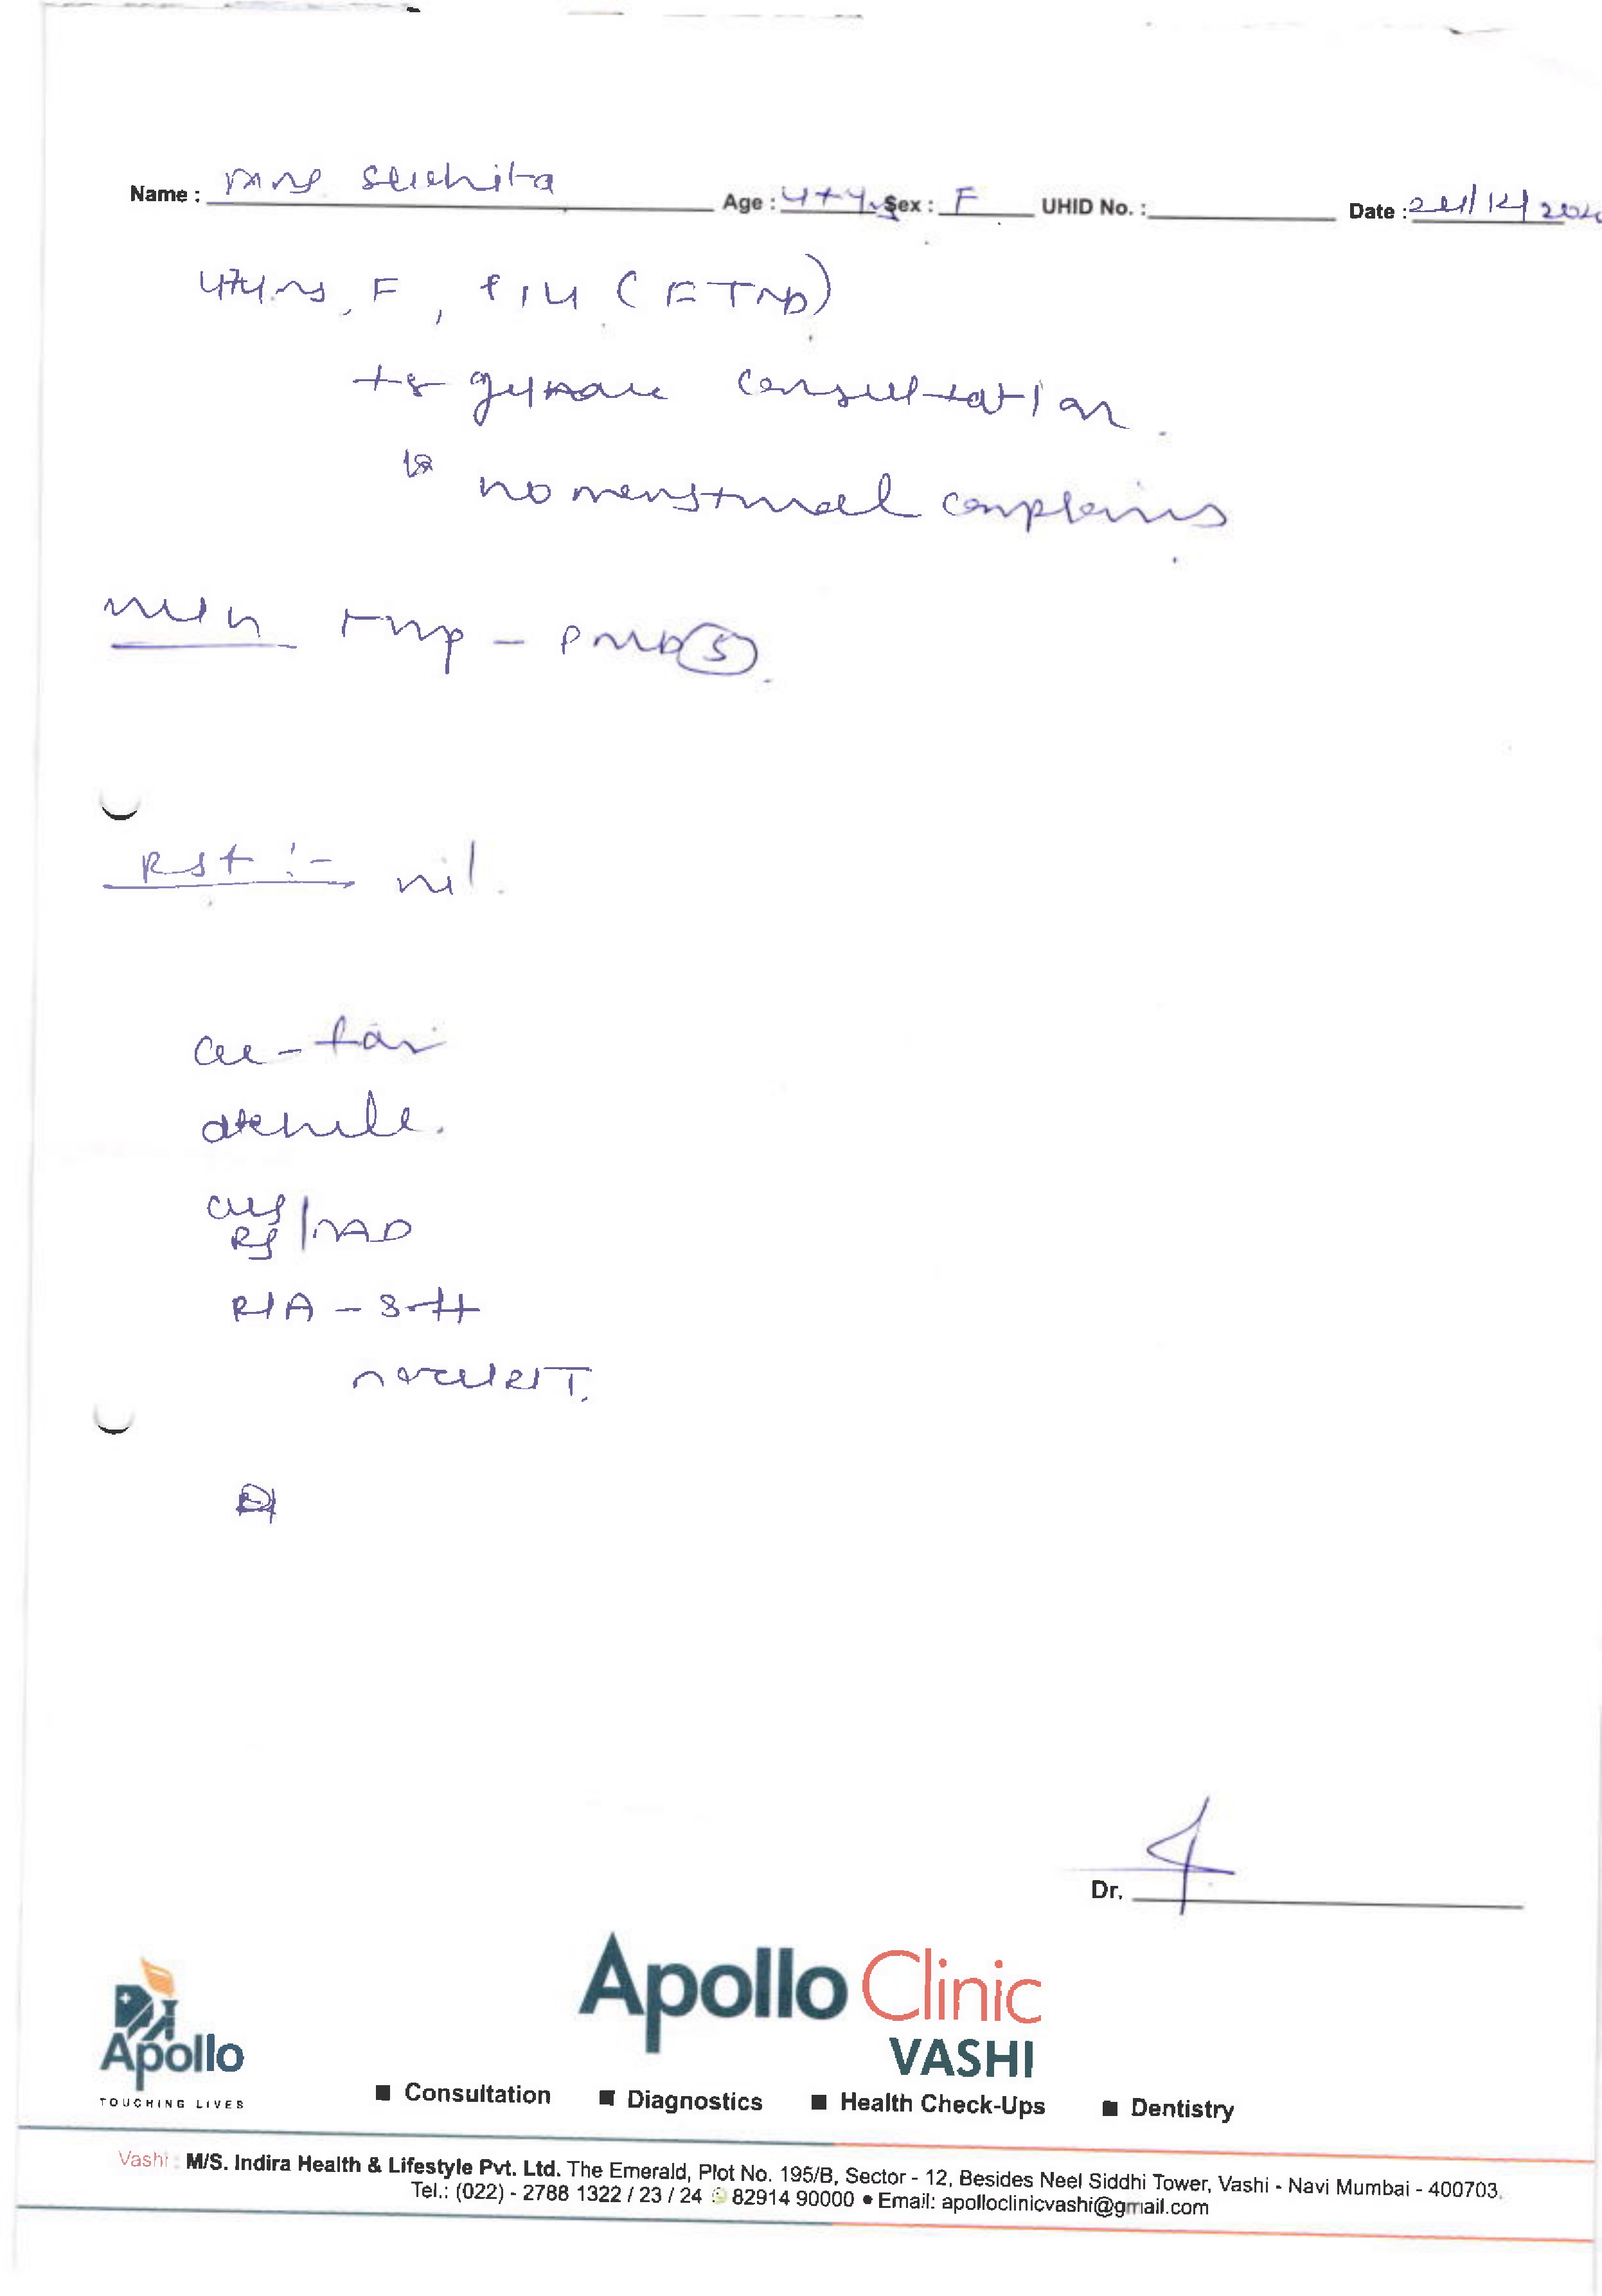 Name : Mrs Suchita Age : 47y Sex : F UHID No. : Date : 24/12/202
47yrs, F, P1L1 (FTND)
for gynae consultation.
no menstrual complains
M/H LMP - PMB
Past :- nil.
GC - fair
afebrile.
CVS
RS / NAD
P/A - Soft
Dr.
Apollo
TOUCHING LIVES
Apollo Clinic
VASHI
■ Consultation ■ Diagnostics ■ Health Check-Ups ■ Dentistry
Vashi : M/S. Indira Health & Lifestyle Pvt. Ltd. The Emerald, Plot No. 195/B, Sector - 12, Besides Neel Siddhi Tower, Vashi - Navi Mumbai - 400703.
Tel.: (022) - 2788 1322 / 23 / 24 82914 90000 ● Email: apolloclinicvashi@gmail.com